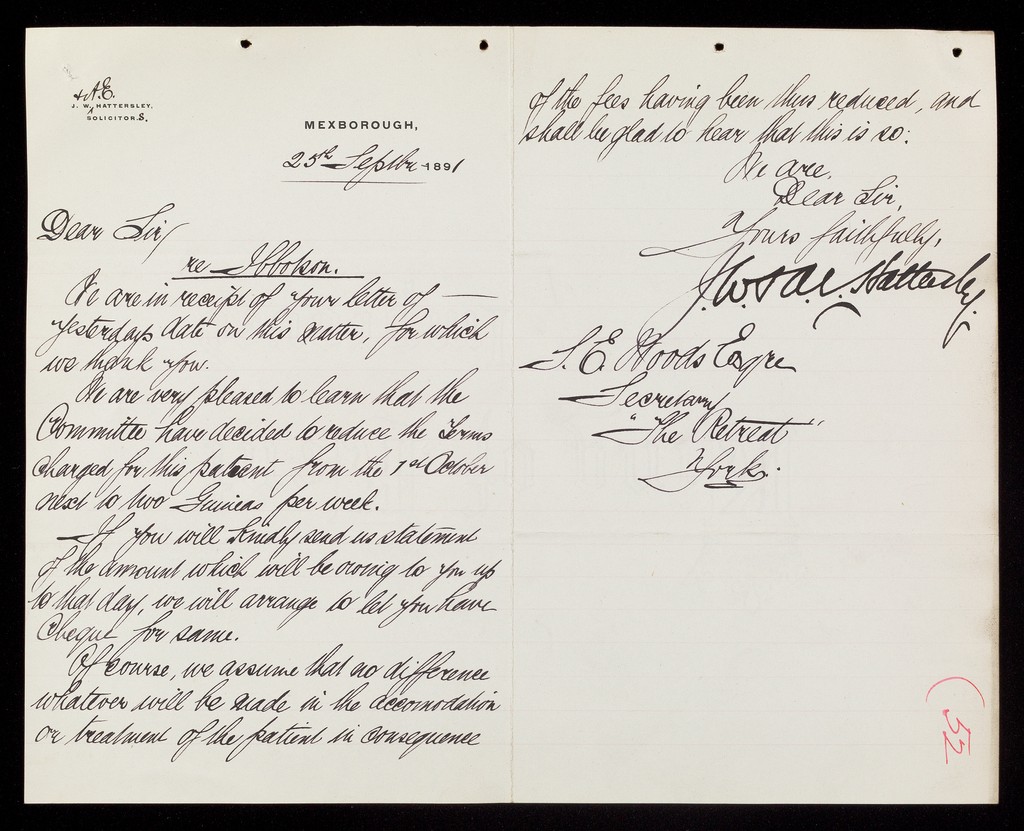 & A. E.
J. W. HATTERSLEY,
SOLICITORS,
MEXBOROUGH,
25th Septbr 1891
Dear Sir/
re Ibbotson.
We are in receipt of your letter of —
yesterdays date on this matter, for which
we thank you.
We are very pleased to learn that the
Committee have decided to reduce the terms
charged for this patient from the 1st October
next to two Guineas per week.
If you will kindly send us statement
of the amount which will be owing to you up
to that day, we will arrange to let you have
cheque for same.
Of course, we assume that no difference
whatever will be made in the accomodation
or treatment of the patient in consequence
of the fees having been thus reduced, and
shall be glad to hear that this is so:
We are,
Dear Sir,
Yours faithfully,
J. W. & A. E. Hattersley.
S. E. Woods Esqre
Secretary
"The Retreat"
York.
(52